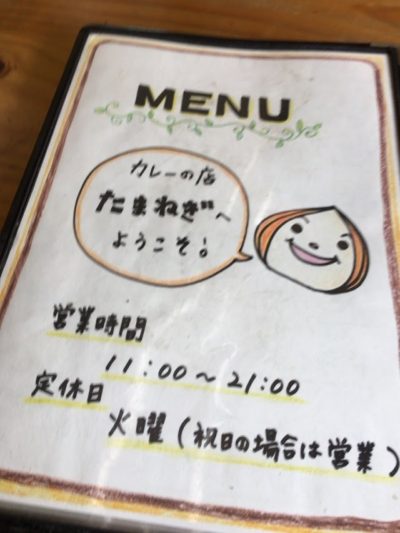 MENU
カレーの店
たまねぎへ
ようこそ!
営業時間
11:00〜21:00
定休日
火曜(祝日の場合は営業)